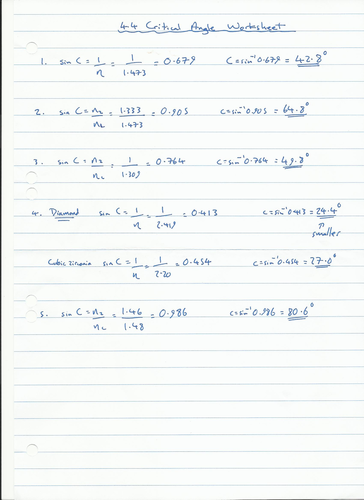 4.4 Critical Angle Worksheet
1. sin C = 1/n = 1/1.473 = 0.679 C = sin⁻¹ 0.679 = 42.8°
2. sin C = n₂/n₂ = 1.333/1.473 = 0.905 C = sin⁻¹ 0.905 = 64.8°
3. sin C = n₂/n₂ = 1/1.309 = 0.764 C = sin⁻¹ 0.764 = 49.8°
4. Diamond sin C = 1/n = 1/2.419 = 0.413 C = sin⁻¹ 0.413 = 24.4°
↑
smaller
Cubic zirconia sin C = 1/n = 1/2.20 = 0.454 C = sin⁻¹ 0.454 = 27.0°
5. sin C = n₂/n₂ = 1.46/1.48 = 0.986 C = sin⁻¹ 0.986 = 80.6°